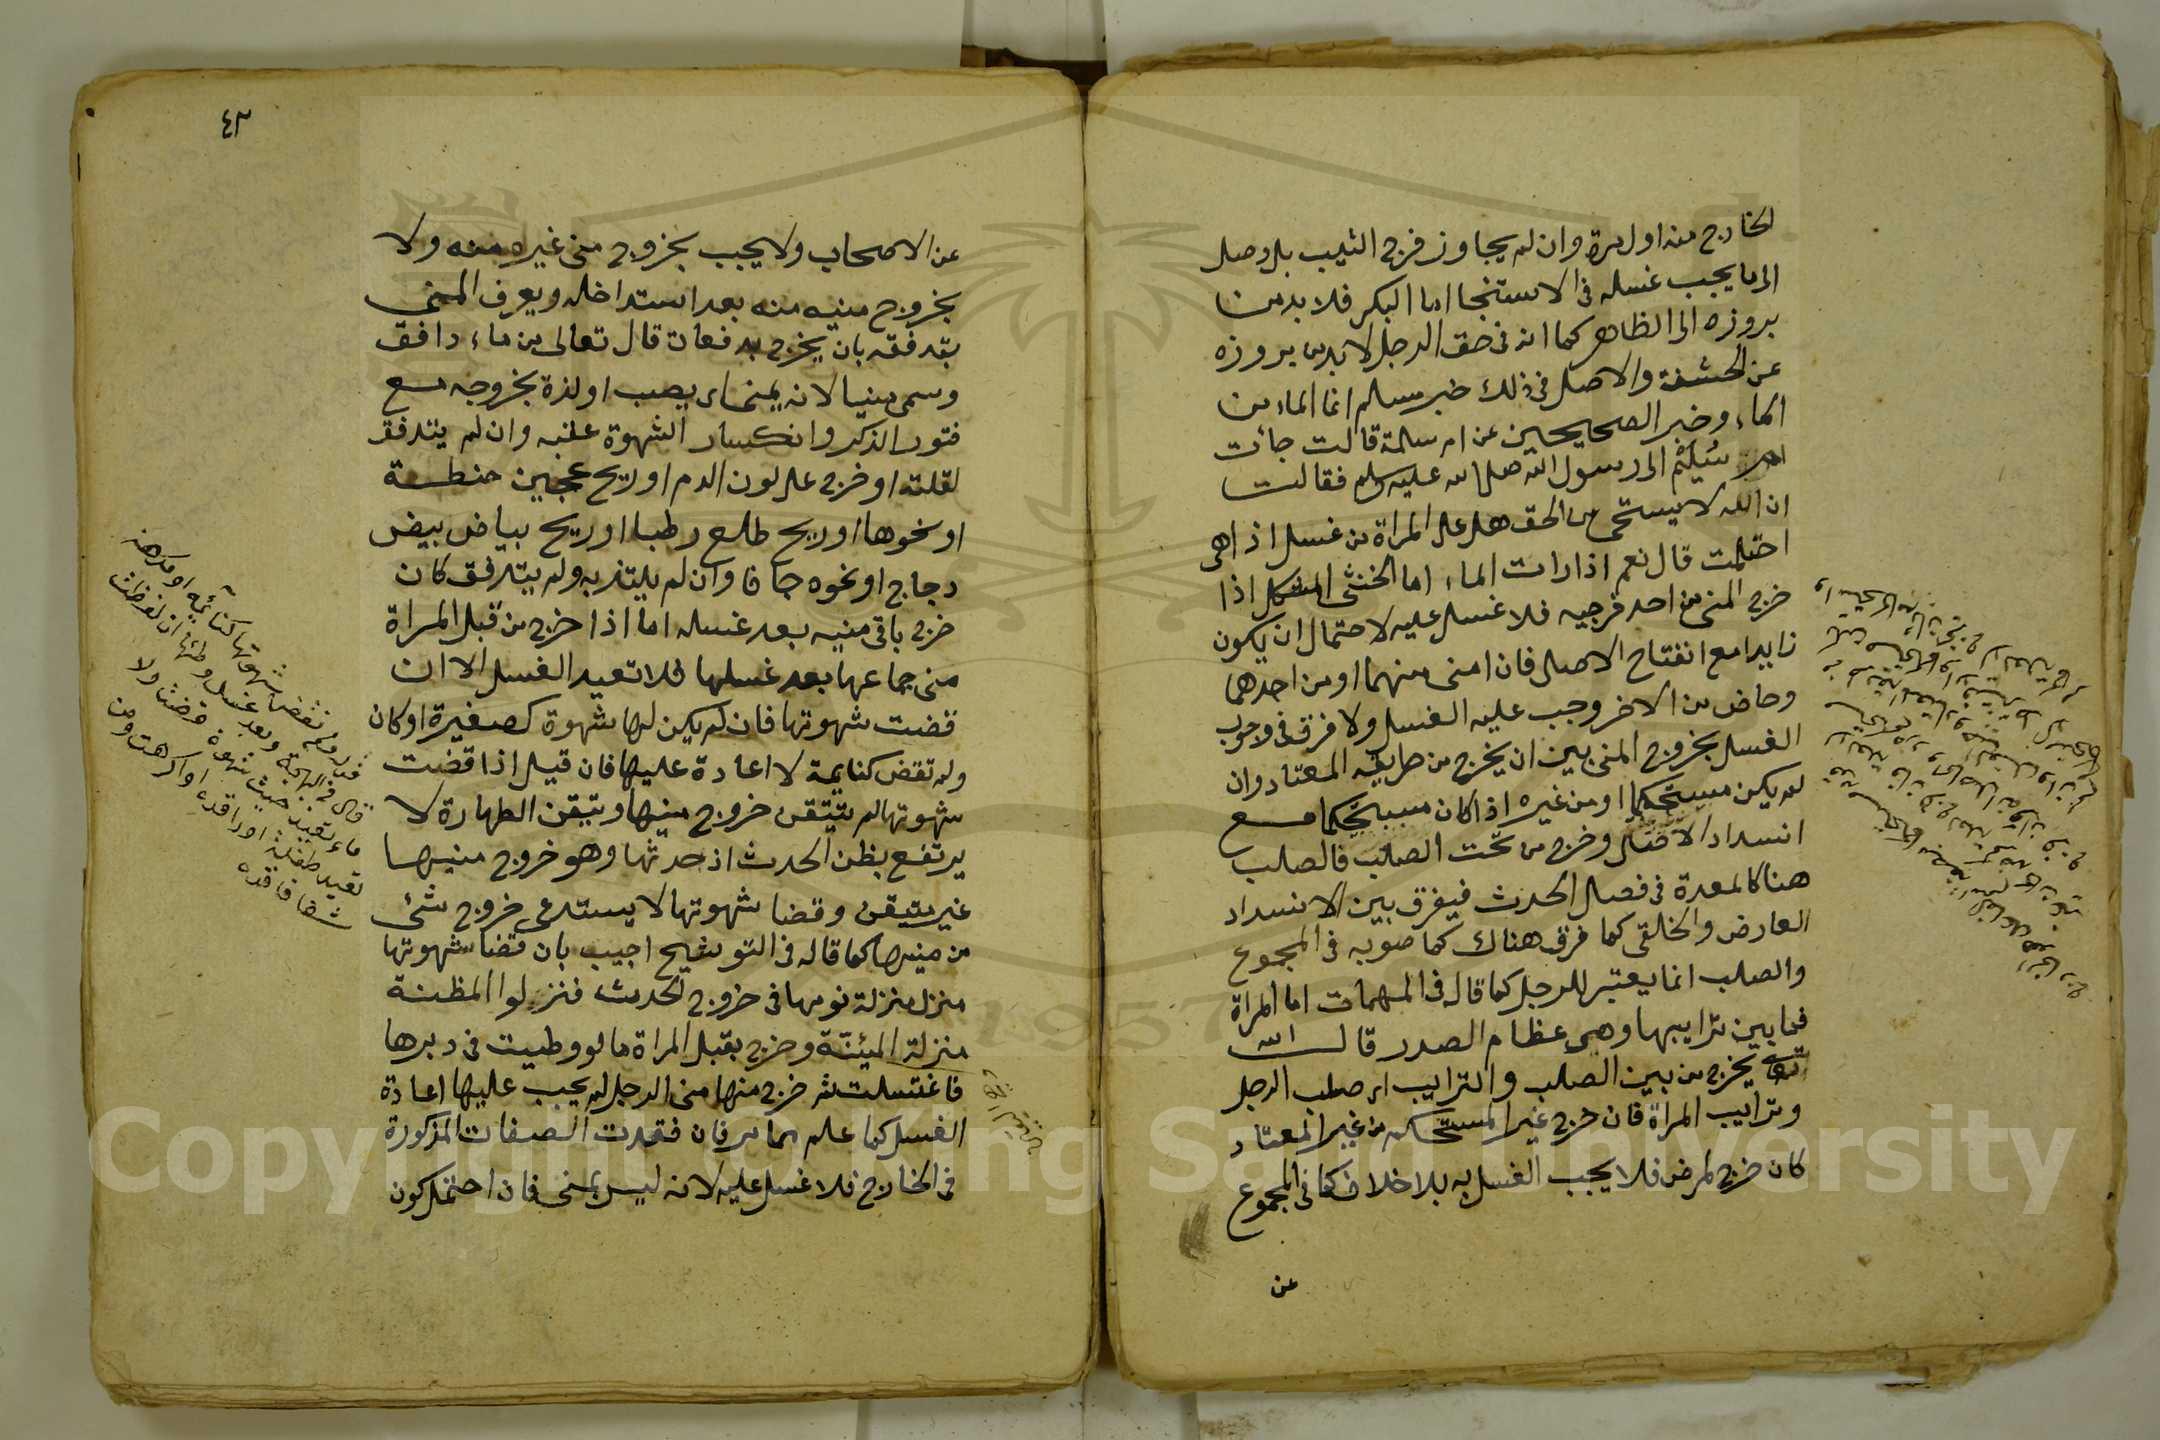 الخارج منه اول مرة وان لم يجاوز فرج الثيب بل وصل
الى ما يجب غسله فى الاستنجا اما البكر فلا بد من
بروزه الى الظاهر كما انه فى حق الرجل لا بد من بروزه
عن الحشفة والاصل فى ذلك خبر مسلم انما الماء من
الماء وخبر الصحيحين عن ام سلمة قالت جاءت
ام سُلَيْم الى رسول الله صلى الله عليه وسلم فقالت
ان الله لا يستحى من الحق هل على المراة من غسل اذا هى
احتلمت قال نعم اذا رات الماء اما الخنثى المشكل اذا
خرج المنى من احد فرجيه فلا غسل عليه لاحتمال ان يكون
زايدا مع انفتاح الاصلى فان امنى منهما او من احدهما
وحاض من الاخر وجب عليه الغسل ولا فرق فى وجوب
الغسل بخروج المنى بين ان يخرج من طريقه المعتاد وان
لم يكن مستحكما او من غيره اذا كان مستحكما مع
انسداد الاصلى وخرج من تحت الصلب فالصلب
هنا كالمعدة فى فصل الحدث فيفرق بين الانسداد
العارض والخلقى كما فرق هناك كما صوبه فى المجموع
والصلب انما يعتبر للرجل كما قاله فى المهمات اما المراة
فما بين ترايبها وهى عظام الصدر قال الله
تعالى يخرج من بين الصلب والترايب اى صلب الرجل
وترايب المراة فان خرج غير المستحكم من غير المعتاد
كان خرج لمرض فلا يجب الغسل به بلا خلاف كما فى المجموع
عن
٤٣
عن الاصحاب ولا يجب بخروج منى غيره منه ولا
بخروج منيه منه بعد استدخاله ويعرف المنى
بتدفقه بان يخرج بدفعات قال تعالى من ماء دافق
وسمى منيا لانه يمنى اى يصب او لذة بخروجه مع
فتور الذكر وانكسار الشهوة عقبه وان لم يتدفق
لقلته او خرج على لون الدم او ريح عجين حنطة
او نحوها او ريح طلع رطبا او ريح بياض بيض
دجاج او نحوه جافا وان لم يلتذ به ولم يتدفق كان
خرج باقى منيه بعد غسله اما اذا خرج من قبل المراة
منى جماعها بعد غسلها فلا تعيد الغسل الا ان
قضت شهوتها فان لم يكن لها شهوة كصغيرة او كان
ولم تقض كنايمة لا اعادة عليها فان قيل اذا قضت
شهوتها لم تتيقن خروج منيها ويتيقن الطهارة لا
يرتفع بظن الحدث اذ حدثها وهو خروج منيها
غير متيقن وقضا شهوتها لا يستدعى خروج شئ
من منيها كما قاله فى التوشيح اجيب بان قضا شهوتها
منزل منزلة نومها فى خروج الحدث فنزلوا المظنة
منزلة المئنة وخرج بقبل المراة ما لو وطيت فى دبرها
فاغتسلت ثم خرج منها منى الرجل لم يجب عليها اعادة
الغسل كما علم مما مر فان فقدت الصفات المذكورة
فى الخارج فلا غسل عليه لانه ليس بمنى فان احتمل كون